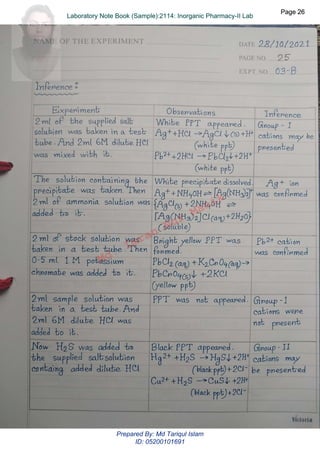 Page 26
Laboratory Note Book (Sample):2114: Inorganic Pharmacy-II Lab
NAME OF THE EXPERIMENT
DATE 28/10/2021
PAGE NO. 25
EXPT. NO. 03-B
Inference:
Experiment Observations Inference
2 ml of the supplied salt
solution was taken in a test
tube. And 2ml 6M dilute HCl
was mixed with it.
White PPT appeared.
Ag⁺+HCl → AgCl↓(s)+H⁺
(white ppt)
Pb²⁺+2HCl → PbCl₂↓+2H⁺
(white ppt)
Group-I
cations may be
presented
The solution containing the
precipitate was taken. Then
2 ml of ammonia solution was
added to it.
White precipitate dissolved.
Ag⁺ + NH₄OH ⇌ [Ag(NH₃)₂]⁺
{AgCl(s) + 2NH₄OH ⇌
[Ag(NH₃)₂]Cl(aq)+2H₂O}
(soluble)
Ag⁺ ion
was confirmed
2 ml of stock solution was
taken in a test tube. Then
0.5 ml 1 M potassium
chromate was added to it.
Bright yellow PPT was
formed.
PbCl₂(aq) + K₂CrO₄(aq)→
PbCrO₄(s)↓ +2KCl
(yellow ppt)
Pb²⁺ cation
was confirmed
2ml sample solution was
taken in a test tube. And
2ml 6M dilute HCl was
added to it.
PPT was not appeared.
Group-I
cations were
not present
Now H₂S was added to
the supplied salt solution
containg added dilute HCl
Black PPT appeared.
Hg²⁺ +H₂S → HgS↓+2H⁺
(black ppt)+2Cl⁻
Cu²⁺ +H₂S → CuS↓ +2H⁺
(black ppt)+2Cl⁻
Group-II
cations may
be presented
Victoria
Prepared By: Md Tariqul Islam
ID: 05200101691